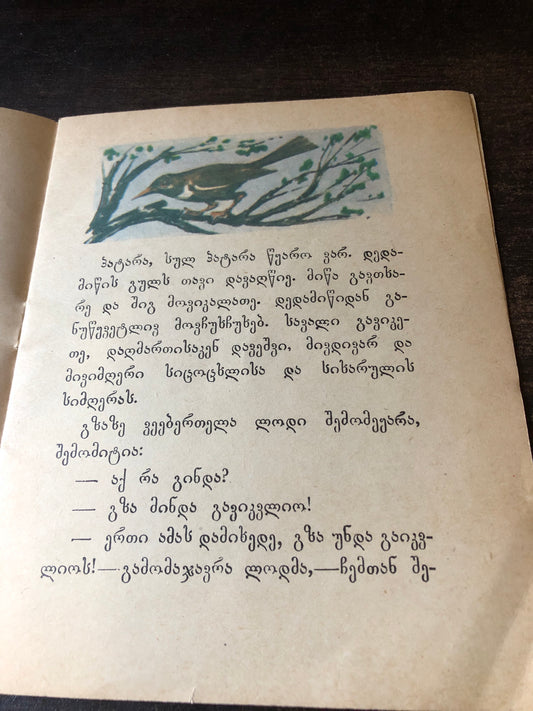 პატარა, სულ პატარა წყარო ვარ. დედა-
მიწის გულს თავი დავაღწიე. მიწა გავთხა-
რე და შიგ მოვიკალათე. დედამიწიდან გა-
ნუწყვეტლივ მოვჩუხჩუხებ. სავალი გავიკე-
თე, დაღმართისაკენ დავეშვი, მივდივარ და
მივიმღერი სიცოცხლისა და სიხარულის
სიმღერას.
გზაზე ვეებერთელა ლოდი შემომეყარა,
შემომიტია:
— აქ რა გინდა?
— გზა მინდა გავიკვლიო!
— ერთი ამას დამიხედე, გზა უნდა გაიკვ-
ლიოს!—გამომაჯავრა ლოდმა,—ჩემთან შე-